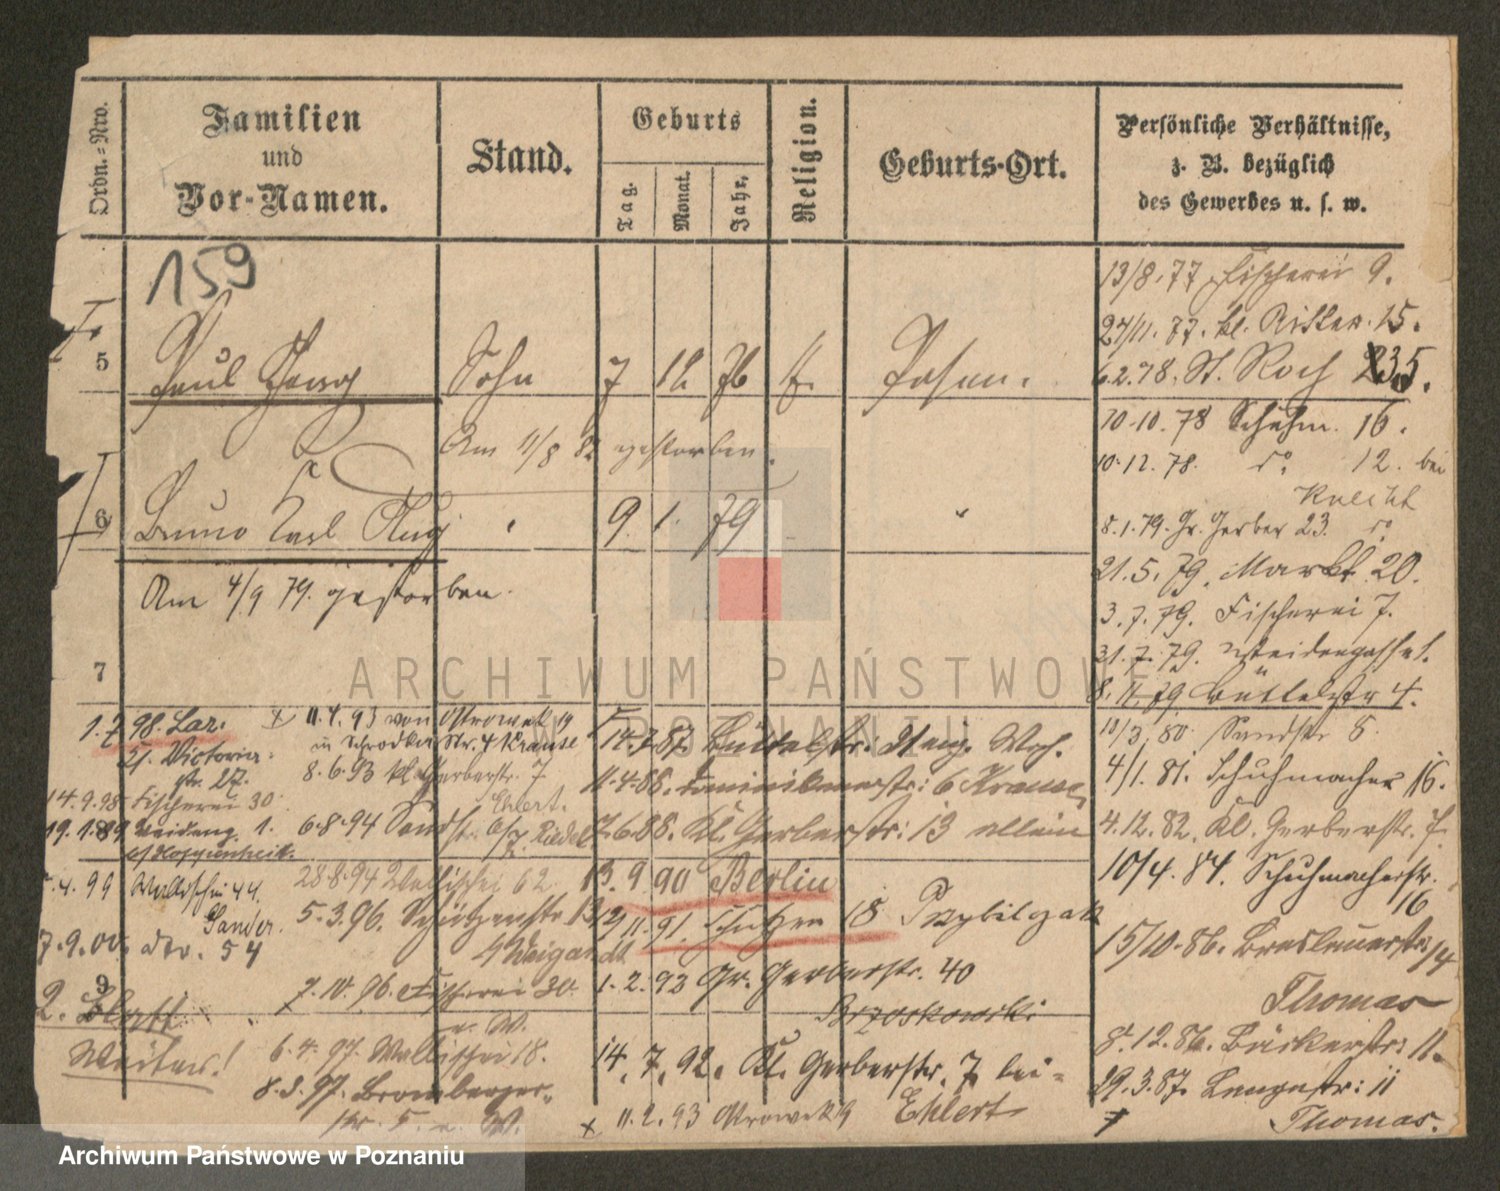 Ordn.-Nro.
Familien
und
Vor-Namen.
Stand.
Geburts
Tag.
Monat.
Jahr.
Religion.
Geburts-Ort.
Persönliche Verhältnisse,
z. B. bezüglich
des Gewerbes u. s. w.
159
5
Paul Georg
Sohn
7 12 76
Posen.
Am 11/8 82 gestorben.
6
Bruno Carl Aug
9. 1. 79
Am 4/9 79. gestorben.
7
13/8.77 Fischerei 9.
27/11.77. kl. Ritter. 15.
6.2.78. St. Roch 5.
10.10.78 Schuhm. 16.
10.12.78. do 12. bei
Knecht
8.1.79. Gr. Gerber 23. do
21.5.79. Markt 20.
3.7.79. Fischerei 7.
31.7.79. Weidengasse 1.
8.11.79 Büttelstr 4.
10/3.80 Sandstr 8.
4/1.81. Schuhmacher 16.
4.12.82. Kl. Gerberstr. 7.
10/4.84. Schuhmacherstr.
16
15/10.86. Breslauerstr:
Thomas
8.12.86. Bäckerstr: 11.
29.3.87. Langestr: 11
Thomas.
14.7.87. Büttelstr:
11.4.88. Dominikanerstr: 6 Krause
7.6.88. Kl. Gerberstr: 13 allein
13.9.90 Berlin
11.91. Schützen 18 Przybilczak
1.2.93 Gr. Gerberstr. 40
Brzoskowski
14.7.92. Kl. Gerberstr. 7 bei
Ehlert
x 11.2.93 Ostrowek 9
x 11.4.93 von Ostrowek 19
in Schrodka Str. 4 Krause
8.6.93 kl Gerberstr. 7
Ehlert.
6.8.94 Sandstr. Riedel
28.8.94 Wallischei 62
5.3.96. Schützenstr. 13
Weigandt
7.10.96. Fischerei 30.
u. W.
6.4.97. Wallischei 18.
8.3.97. Bromberger-
str. 5. u. W.
1.7 98. Laz.
Victoria-
str. 27.
14.9.98 Fischerei 30
19.1.89 Weideng. 1.
4.99 Wallischei 44.
Sander.
7.9.00. do. 54
9
2. Blatt
Weiter!
ARCHIWUM PAŃSTWOWE
W POZNANIU
Archiwum Państwowe w Poznaniu